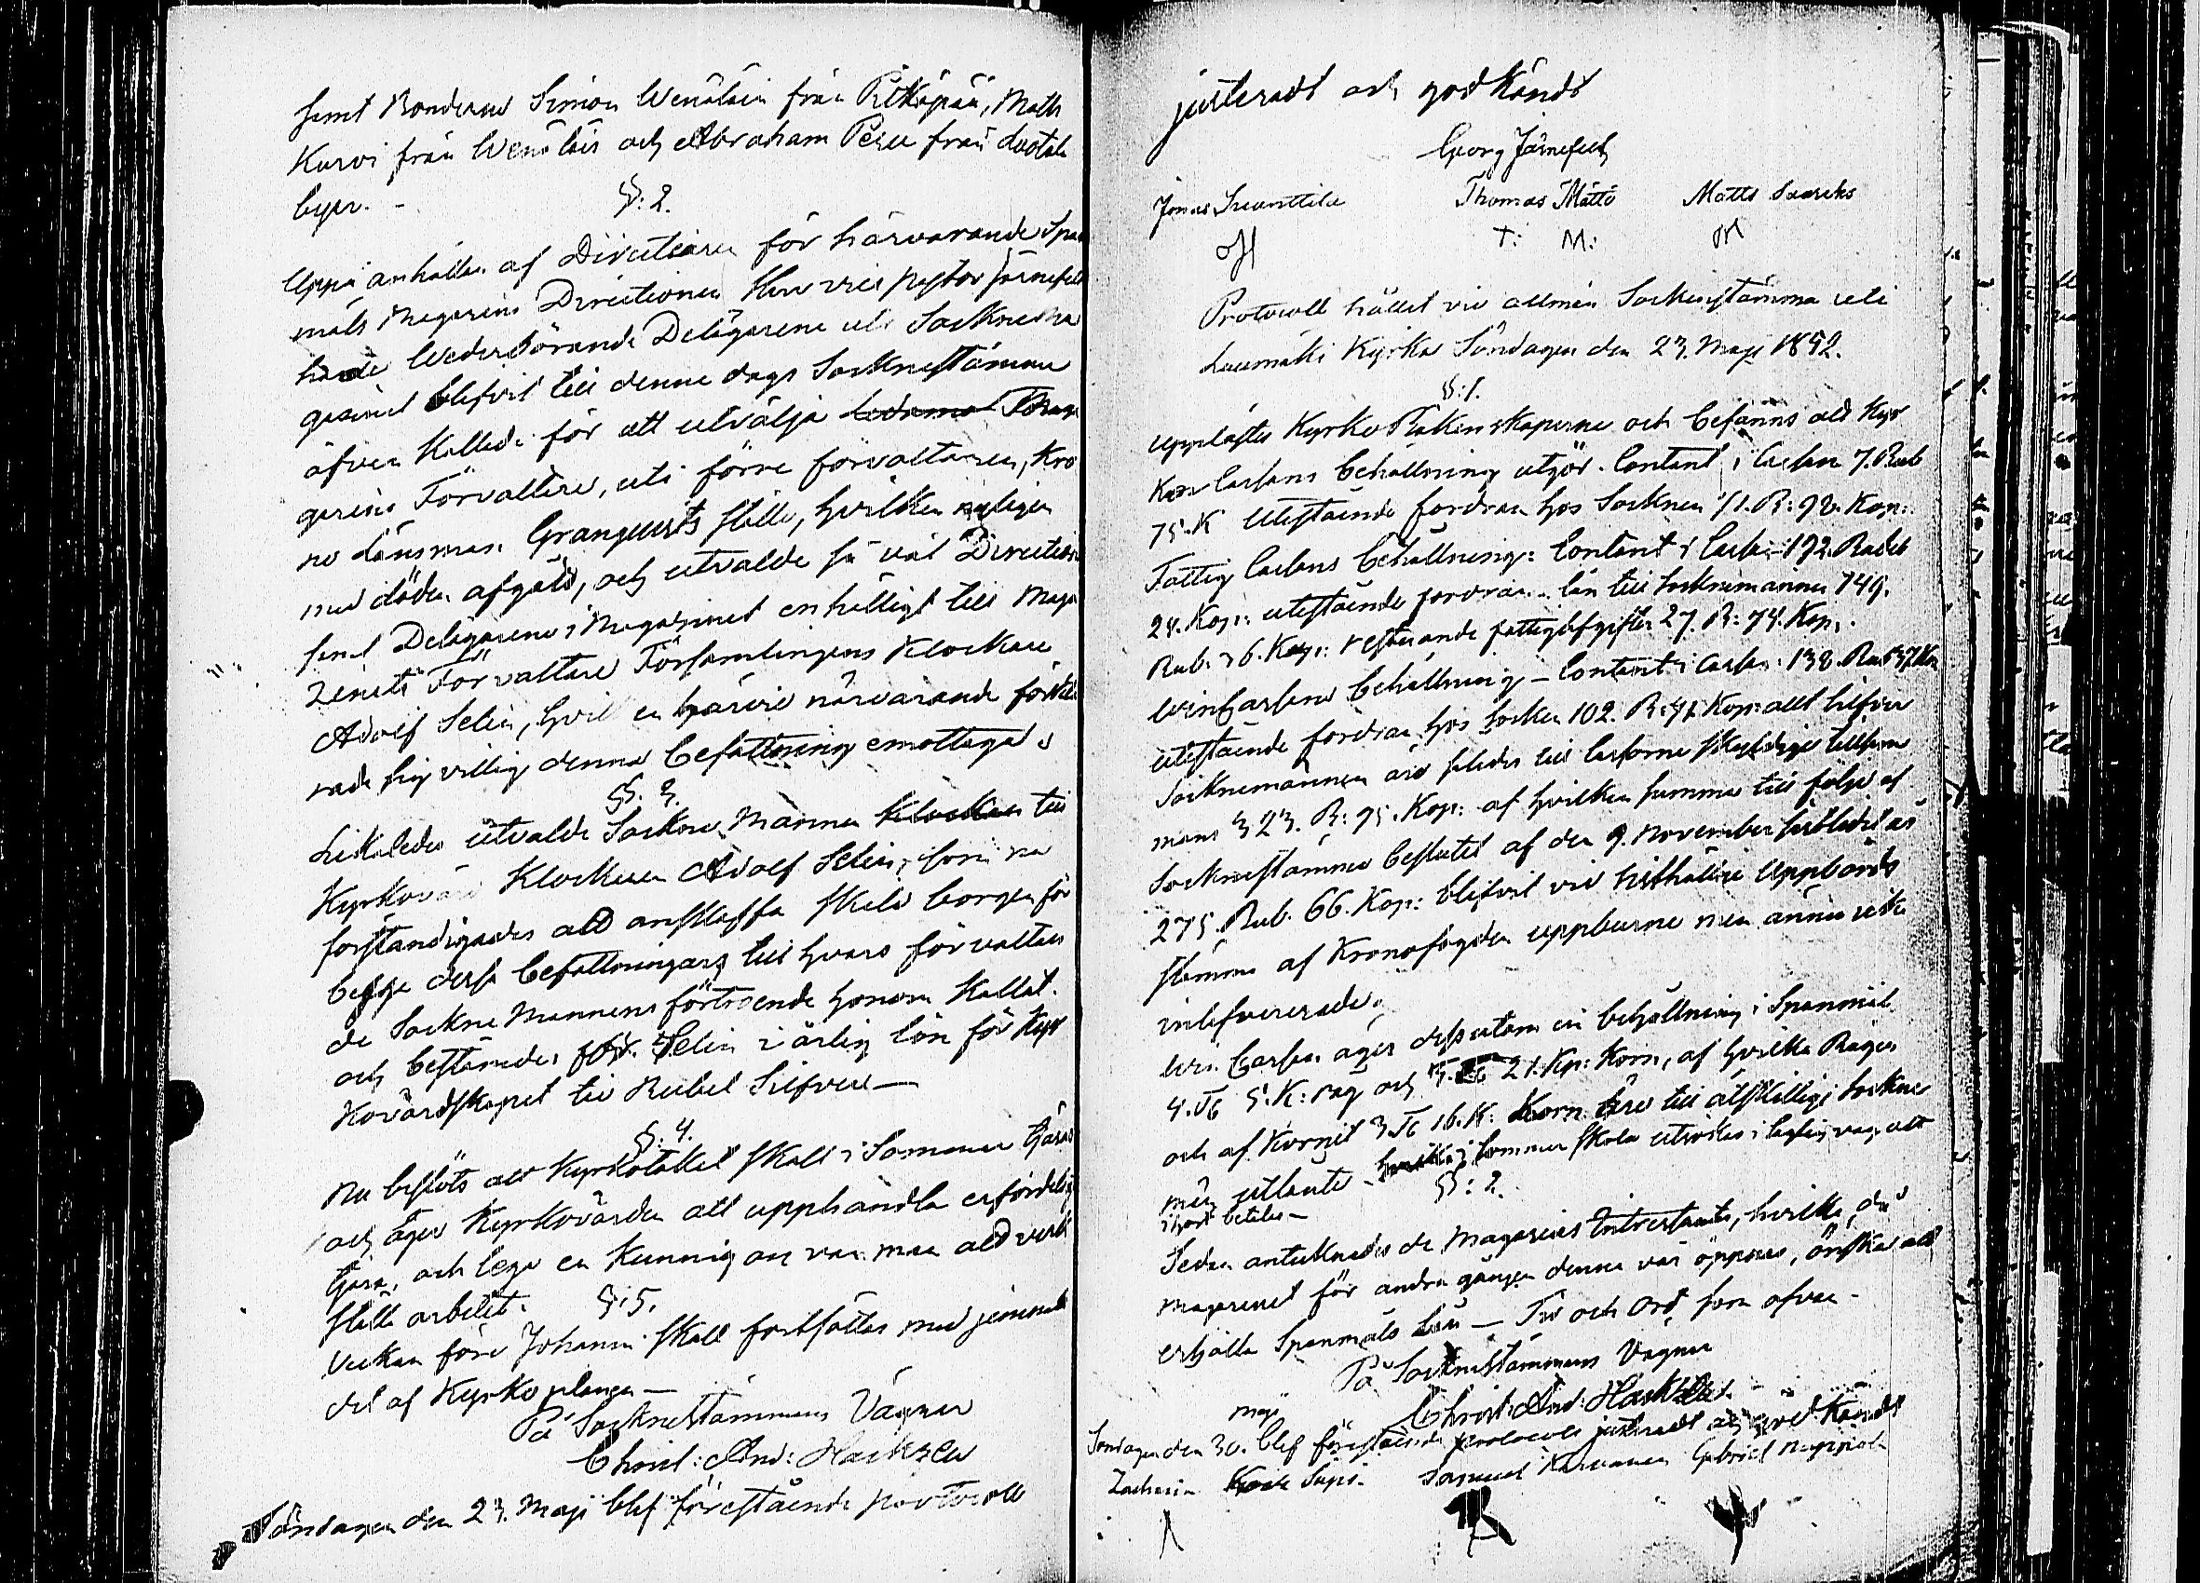 samt Bonderne Simon Wenäläin från Pitkäpää, Matts
Kurvi från Wenäläis och Abraham Pesu från Luotola
byar. -
§: 2.
Uppå anhållan af Directionen för härvarande Span
måls Magazins Directionen Herr vice pastor Järnefelt
hade Wederbörande Delägarene uti Sockne Ma
gasinet blifvit till denne dags Socknestämma
äfven kallade för att utvälja Maga
zins Förvaltare, uti förre förvaltaren, Kro
no Länsman Granqvists ställe, hvilken nyligen
med döden afgått, och utvalde så väl Directionen
samt Delägarene i Magazinet enhälligt till Maga
zinets Förvaltare Församlingens Klockare
Adolf Selin, hvilken härvid närvarande förkla
rade sig villig denna befattning emottaga.
§: 3.
Likaledes utvalde Sockne Männen till
Kyrkovärd Klockaren Adolf Selin, som nu
förständigades att anskaffa skild borgen för
begge dessa befattningars till hvars förvaltan
de Sockne Mannens förtroende honom kallat.
och bestämdes Selin i årlig lön för Kyr
kovärdskapet tio Rubel Silfver —
§: 4.
Nu beslöts att Kyrkotaket skall i Sommar tjäras
och äger Kyrkovärden att upphandla erforderlig
tjära, och lega en kunnig man att verk
ställa arbetet.
§: 5.
Veckan före Johanni skall fortsättas med jemnan
det af Kyrkoplanen —
På Socknestämmans Vägnar
Christ: And: Hackzell
Söndagen den 23. Maji blef förestående protocoll
justeradt och godkändt
Georg Järnefelt
Jonas Suanttila Thomas Mättö Matts Saareks
T: M:
Protocoll hållet vid allmän Sockenstämma uti
Luumäki Kyrka Söndagen den 23. Maji 1852.
§: 1.
Upplästes Kyrko Räkenskaperne och befanns att Kyr
ko Cassans behållning utgör. Contant i Cassan 7. Rub
75. K utestående fordran hos Socknen R: 92. Kop:.
Fattig Cassans behållning: Contant i Cassan 192. Rubel
24. Kop: utestående fordran. lån till Socknemännen 149.
Rub. 36. Kop: resterande fattigafgifter 27. R: 74. Kop.
Vin Cassans behållning — Contant i Cassan: 138. Rub 37 Kop
utestående fordran hos Socken 102. R: Kop: allt hvad
Socknemännen äro således till Cassorne skyldige tillsam
mans 323. R: 95. Kop: af hvilken summa till följe af
Sockenstämmo beslutet af den 9. November sistledet år
275. Rub. 66. Kop: blifvit vid sisthållne Uppbörds
stämma af Kronofogden uppburne men ännu icke
inlefvererade.
Vin Cassan äger dessutom en behållning i Spanmål
4. T: 5. K: råg och 21. Kp: Korn, af hvilka Rågen
och af Kornet 3 T: 16. K: Korn äro till åtskillige Sockne
män utlånte i Sommar skola utsökas i laglig väg att
§: 2.
betalas —
Sedan antecknades de Magasins Intressenter, hvilka, då
magazinet för andra gången denna vår öppnas, önskar att
erhålla Spanmåls Lån — År och Ord som ofvan.
På Sockenstämmans Vägnar
Christ: And: Hackzell
Söndagen den 30. maji blef förestående protocoll justeradt och godkändt
Zacharias Supi. Samuel Karvanen Gabriel Nappola